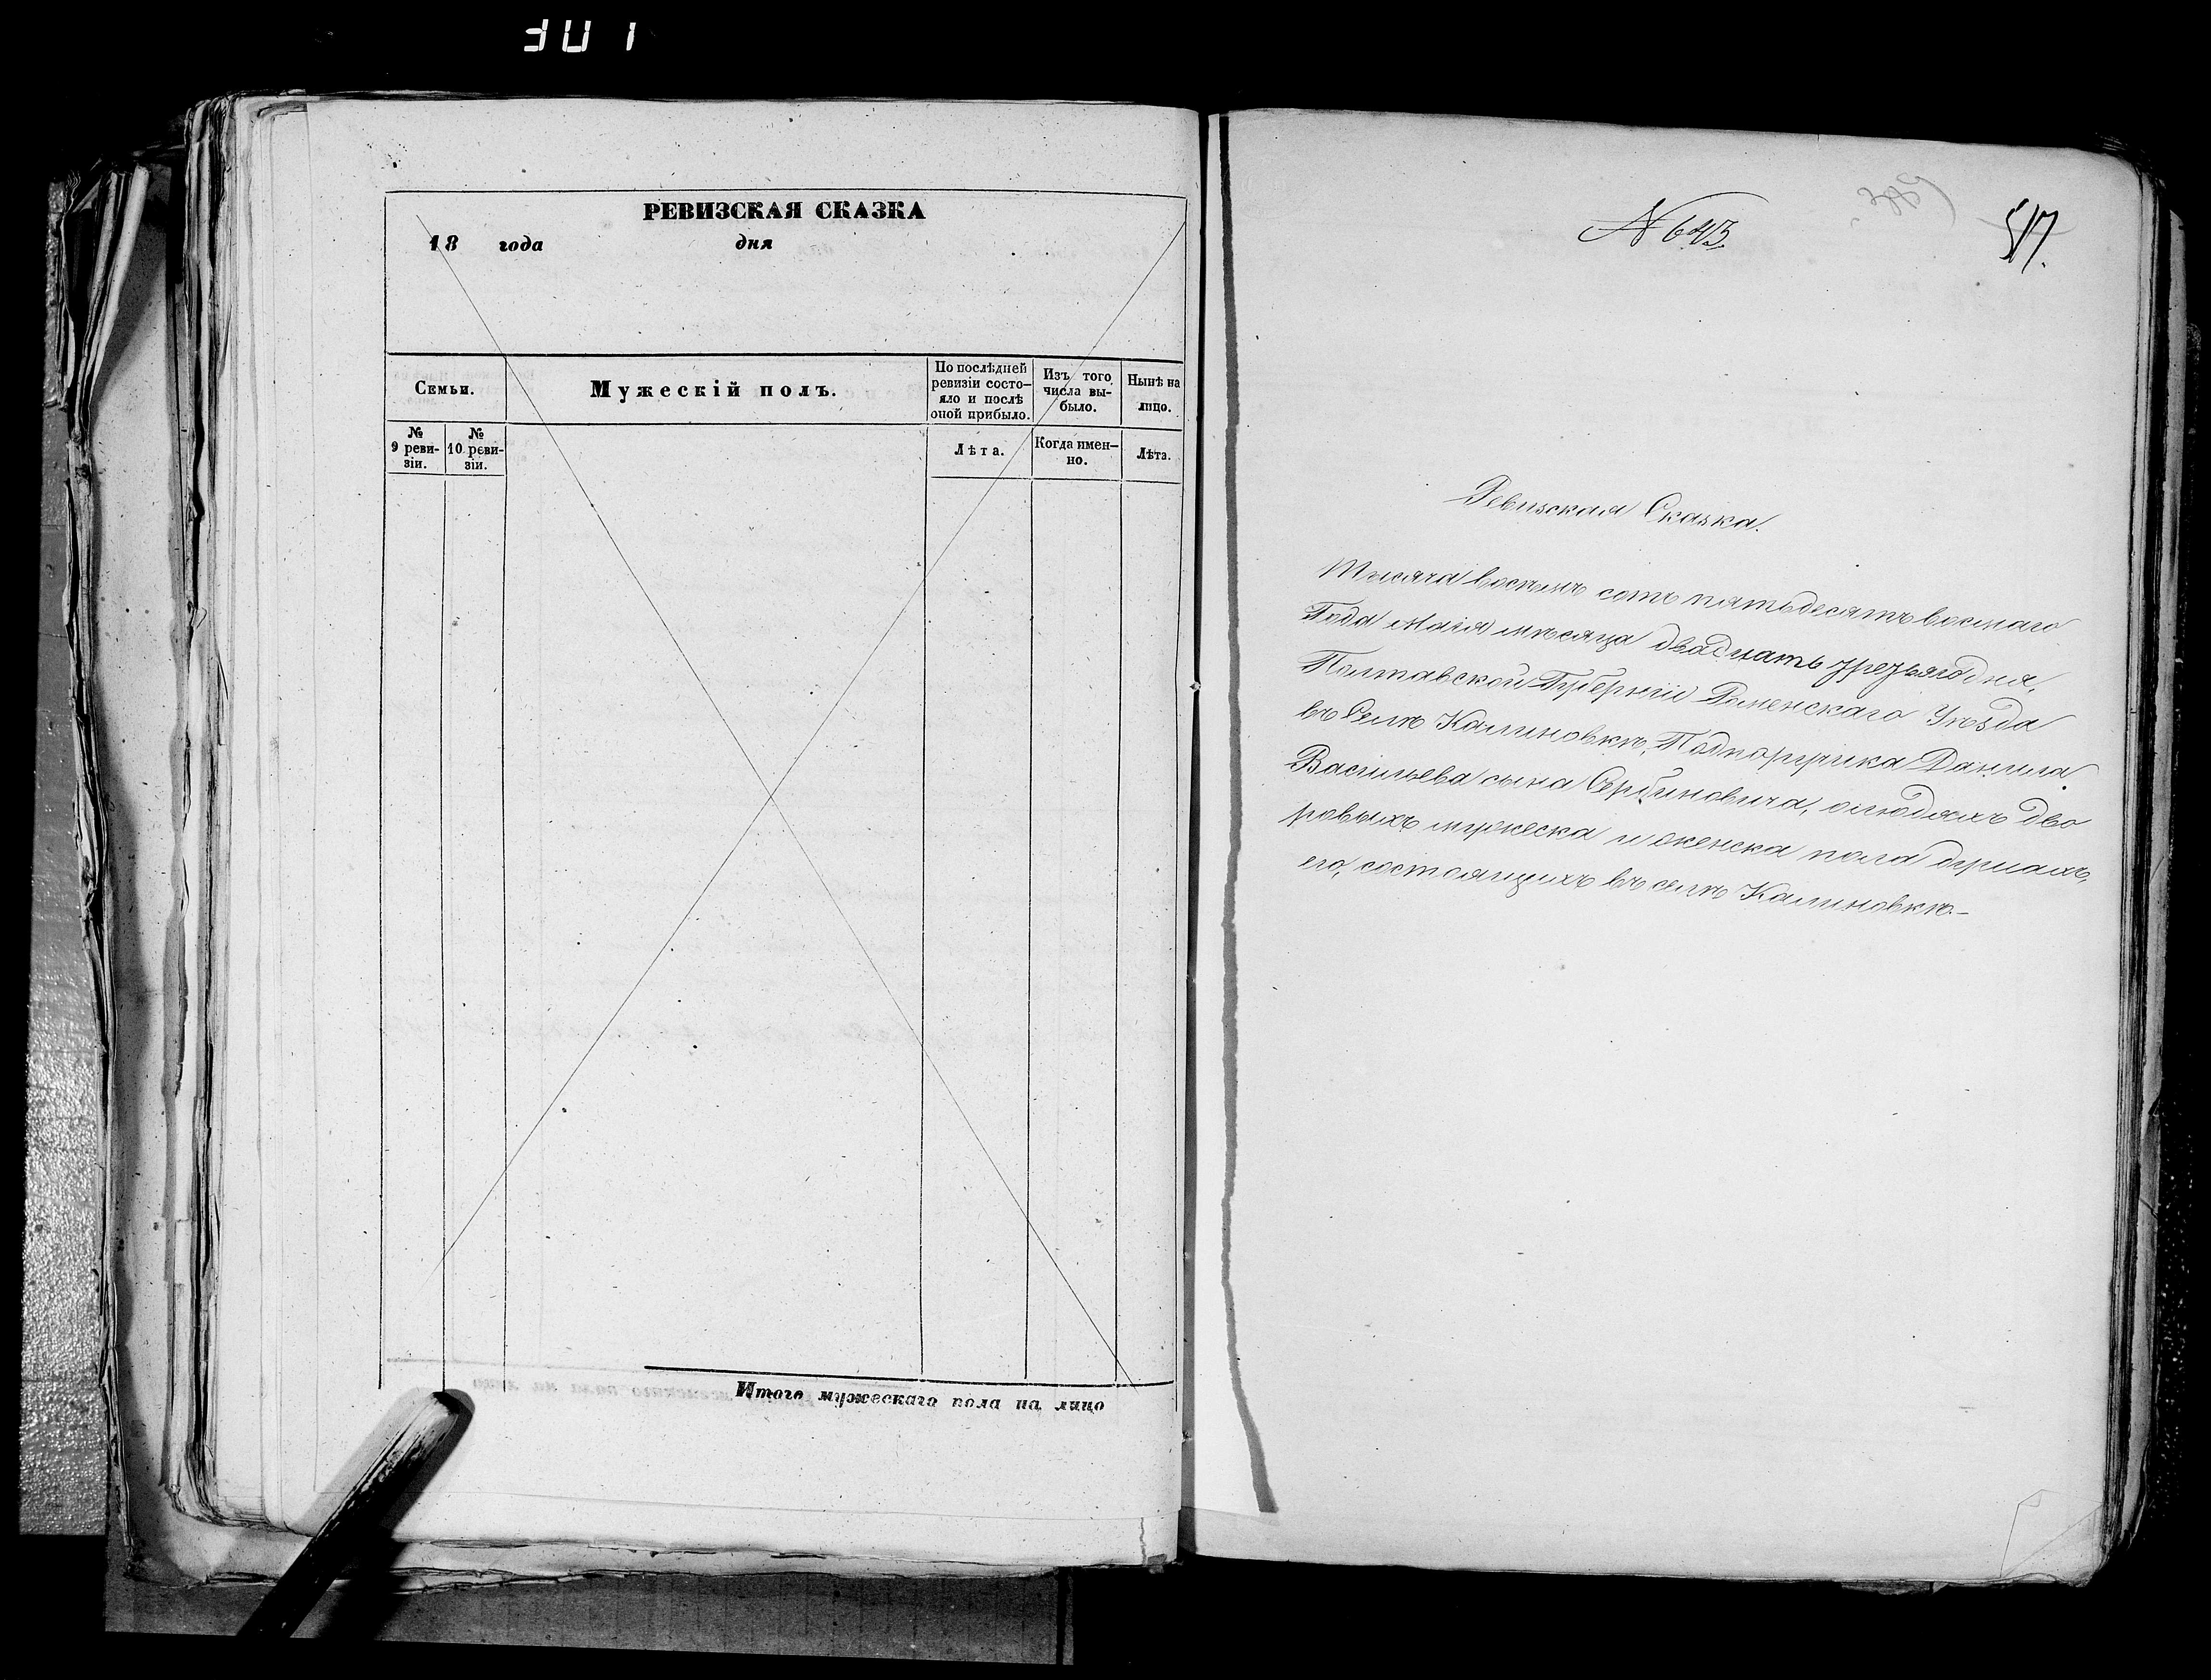 РЕВИЗСКАЯ СКАЗКА
18 года дня
Семьи.
Мужескій полъ.
По послѣдней
ревизіи состо-
яло и послѣ
оной прибыло.
Изъ того
числа вы-
было.
Нынѣ на
лицо.
№
9 реви-
зіи.
№
10 реви-
зіи.
Лѣта.
Когда имен-
но.
Лѣта.
Итого мужескаго пола на лицо
N 643.
517.
Ревизская Сказка.
Тысяча восемь сотъ пятьдесятъ восмаго
Года Маія мѣсяца двадцать третьяго дня,
Полтавской Губерніи Роменскаго Уѣзда
въ Селѣ Калиновкѣ, Подпоручика Данила
Васильева сына Сербиновича, о людяхъ дво
ровыхъ мужеска и женска пола душахъ,
его, состоящихъ въ селѣ Калиновкѣ.-